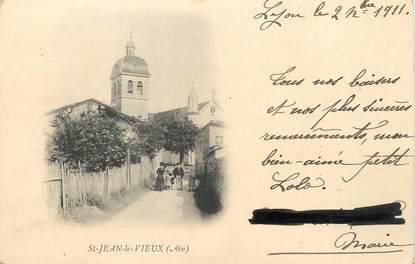 Lyon le 2 9bre 1911.
Tous nos baisers
et nos plus sincères
remerciements, mon
bien-aimé petit
Lolo.
Marie
St-JEAN-le-VIEUX (Ain)